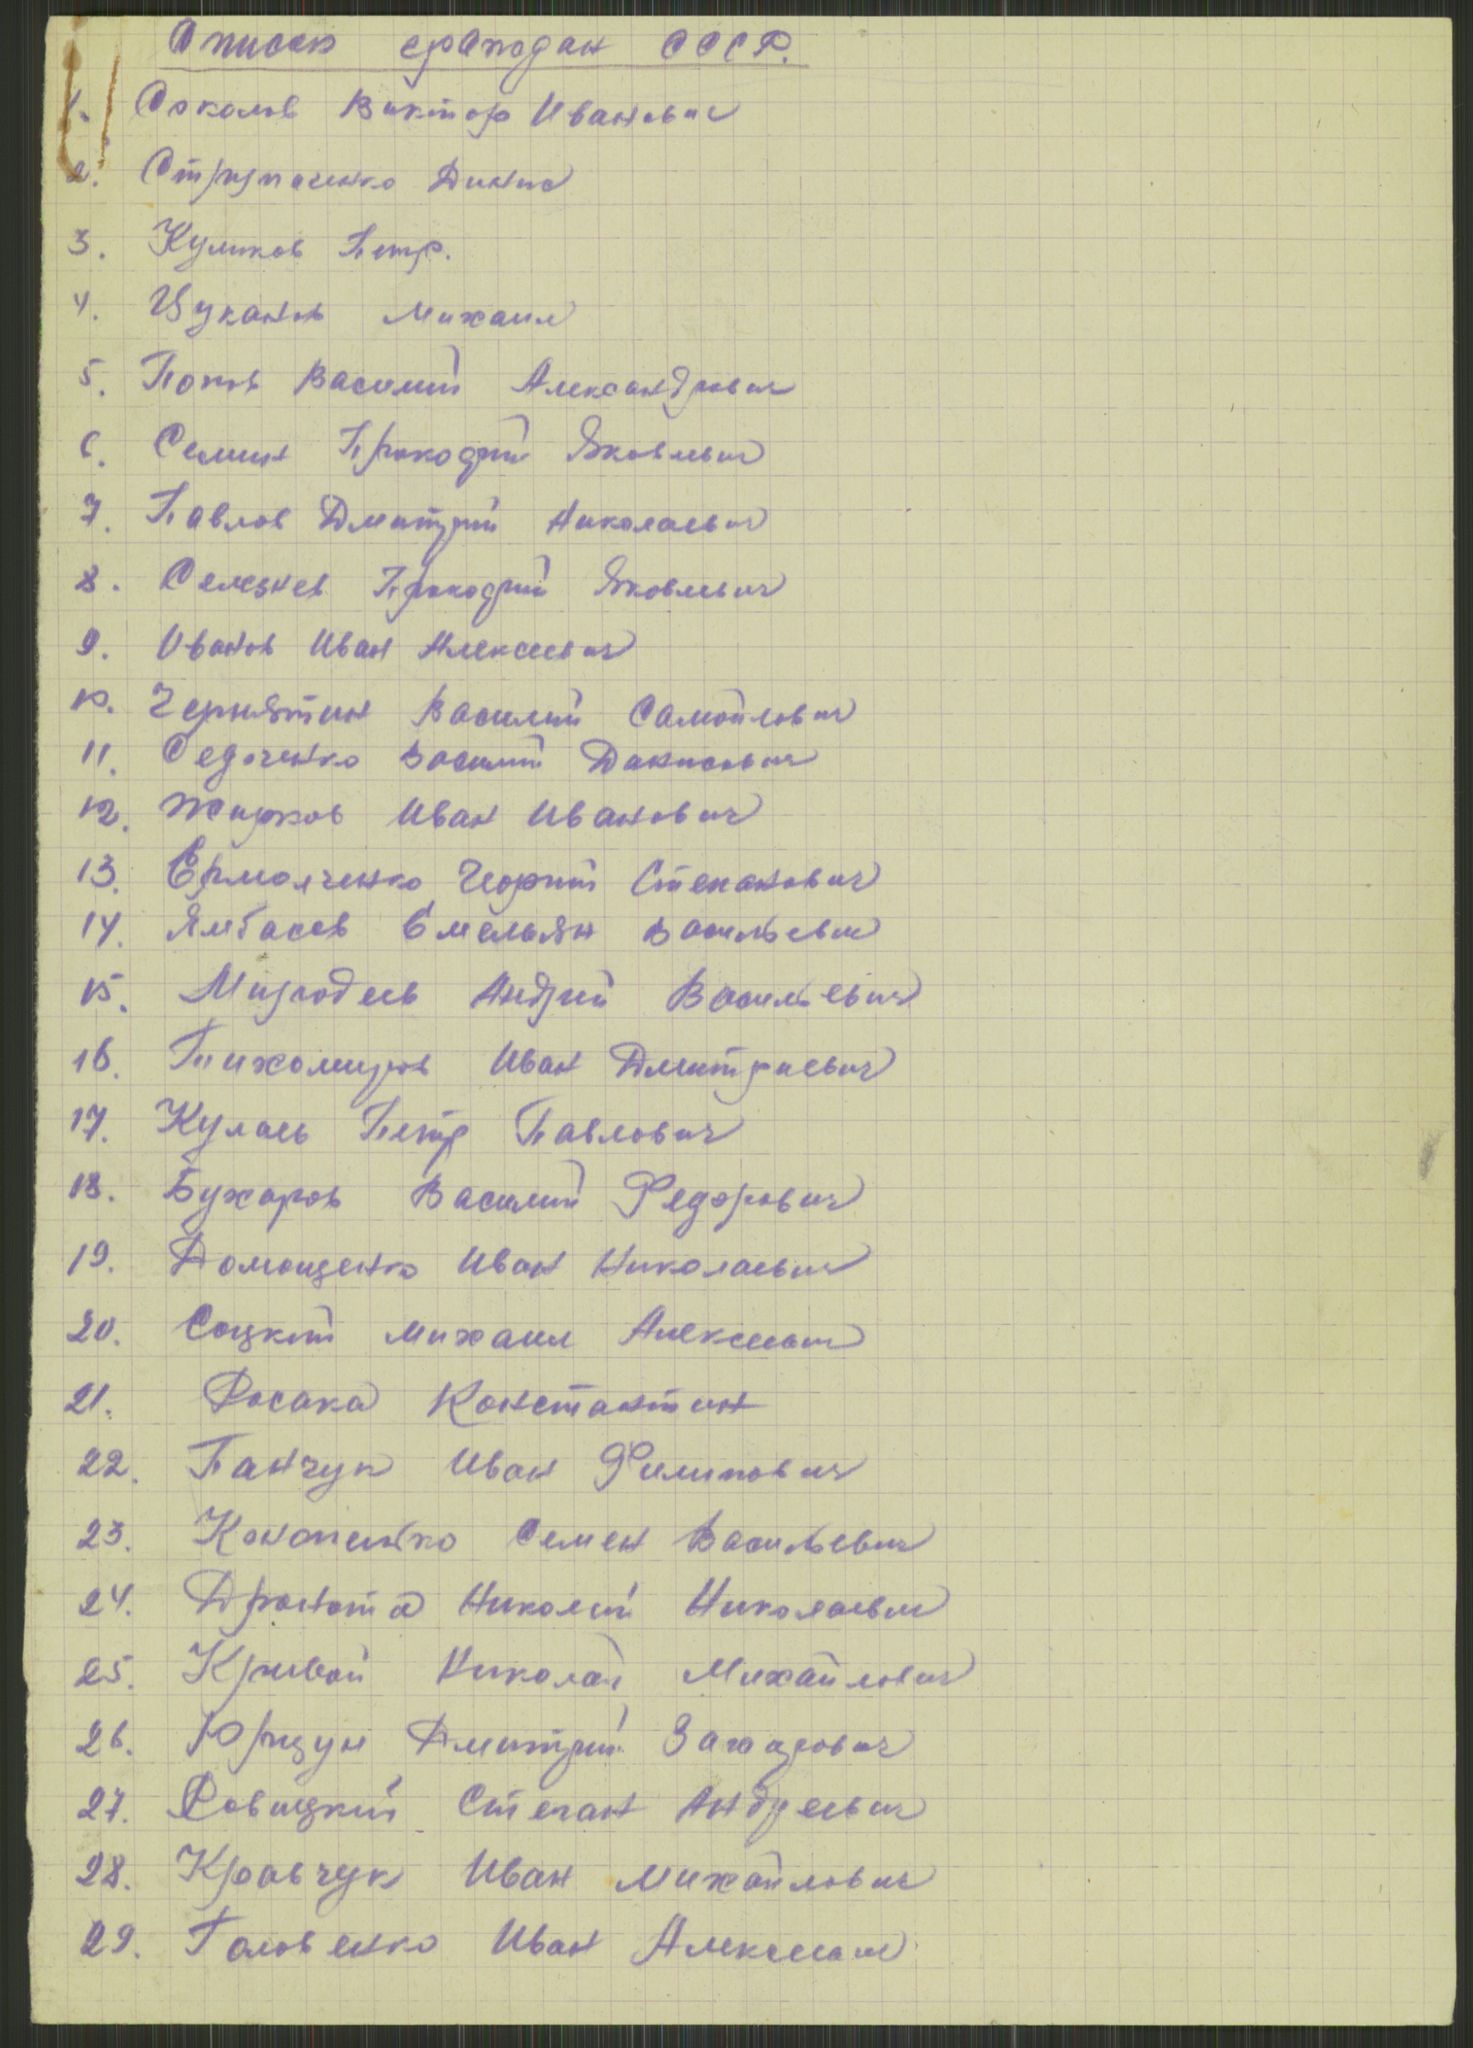 Список граждан СССР.
1. Соколов Виктор Иванович
2. Струпаченко Динис
3. Куликов Петр.
4. Цуканов Михаил
5. Попов Василий Александрович
6. Семин Прокофий Яковлевич
7. Павлов Дмитрий Николаевич
8. Селезнев Прокофий Яковлевич
9. Иванов Иван Алексеевич
10. Чернятин Василий Самойлович
11. Седоченко Василий Данисович
12. Жирков Иван Иванович
13. Ермолченко Георгий Степанович
14. Ямбаев Емельян Васильевич
15. Андрей Васильевич
16. Тихомиров Иван Дмитриевич
17. Петр Павлович
18. Бухаров Василий Федорович
19. Домощенко Иван Николаевич
20. Соцкий Михаил Алексеевич
21. Росака Константин
22. Панчук Иван Филипович
23. Кононенко Семен Васильевич
24. Николай Николаевич
25. Кривой Николай Михайлович
26. Дмитрий Захарович
27. Ровицкий Степан Андреевич
28. Кравчук Иван Михайлович
29. Головенко Иван Алексеевич